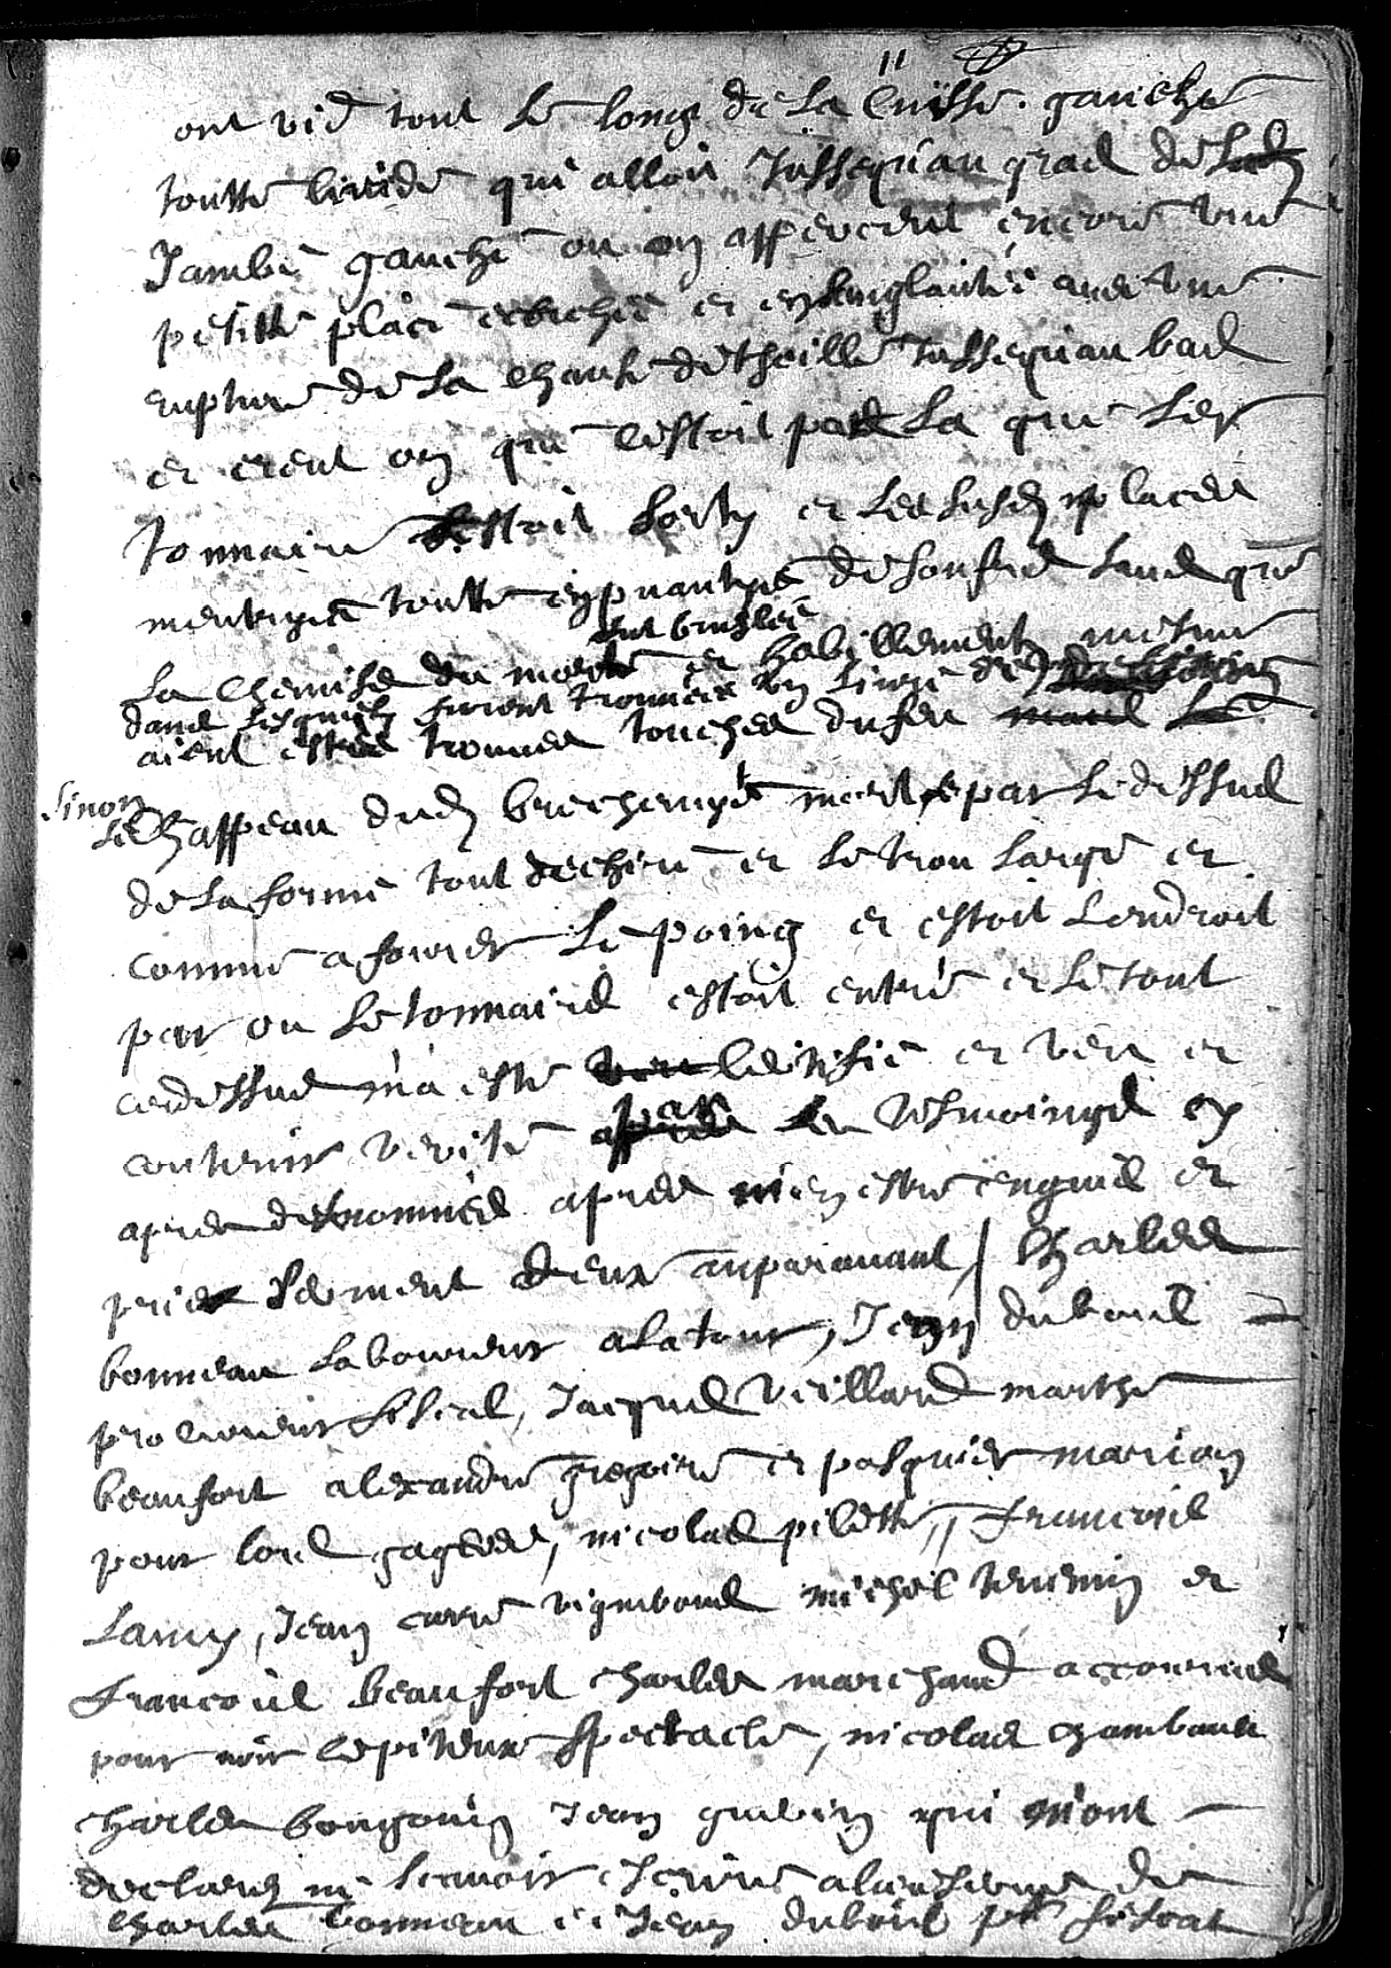 11
ont vid tout le long de la cuisse gauche
toutte livide qui alloit jussequ'au gras de lad
jambe gauche ou on apperceut encore une
petitte place et ensenglantée avec une
rupture de la chausse detheille jussequ'au bas
et creut on que cestoit par la que le
tonnaire estoit sorty et lesusd places
meurtryes toutte empuantyes de souffre sans que
la chemise du mort et habillement mesme
fut bruslée
dans lesquels furent trouvéez un livre de
aient esté trouvés touches du feu
sinon
le chappeau dud par le dessus
de la forme tout deschiré et le trou large et
comme a fourer le poing et estoit lendroit
par ou le tonnaire estoit entré et le tout
cydessus m'a esté certifié et veu et
contenir verité par tesmoings cy
apres denommés apres m'en estre enquis et
pris serment deux auparavant / Charles
bonneau laboureur a la tour, Jean dubois
procureur fiscal, Jacques veillard marthe
beaufort alexandre gregoire et pasquier marion
pour lors gagers, nicolas pilette, francois
Lamy, Jean carré vignerons michel et
francois beaufort charles marchand accourus
pour voir ce piteux spectacle, nicolas chambault
charles bourgouin Jean guerin qui m'ont
declaré ne scavoir escrire a la reserve de
charles bonneau et Jean dubois pr fiscal